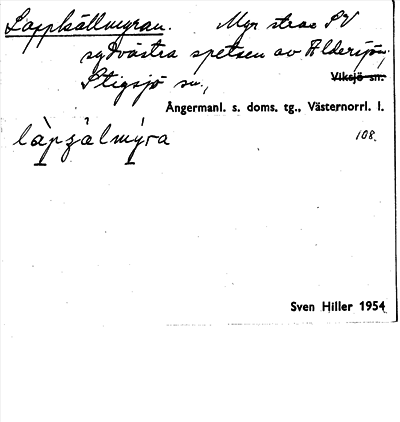 Lappkällmyran. Myr strax SV
sydvästra spetsen av Äldersjön,
Stigsjö sn., Viksjö sn.
Ångermanl. s. doms. tg., Västernorrl. l.
làpʒälmýra 108.
Sven Hiller 1954